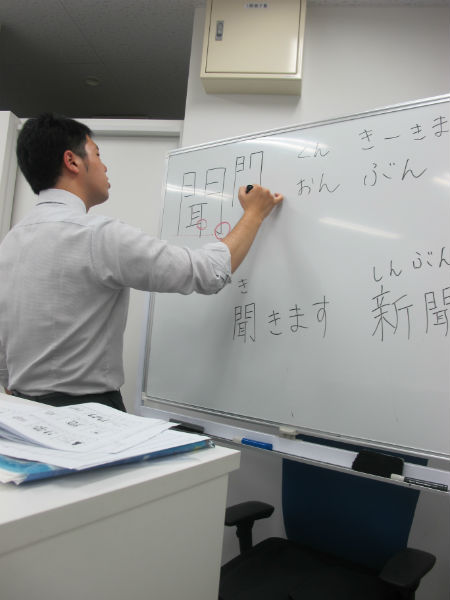 聞 門
くん きーきま
おん ぶん
き
聞きます
しんぶん
新聞